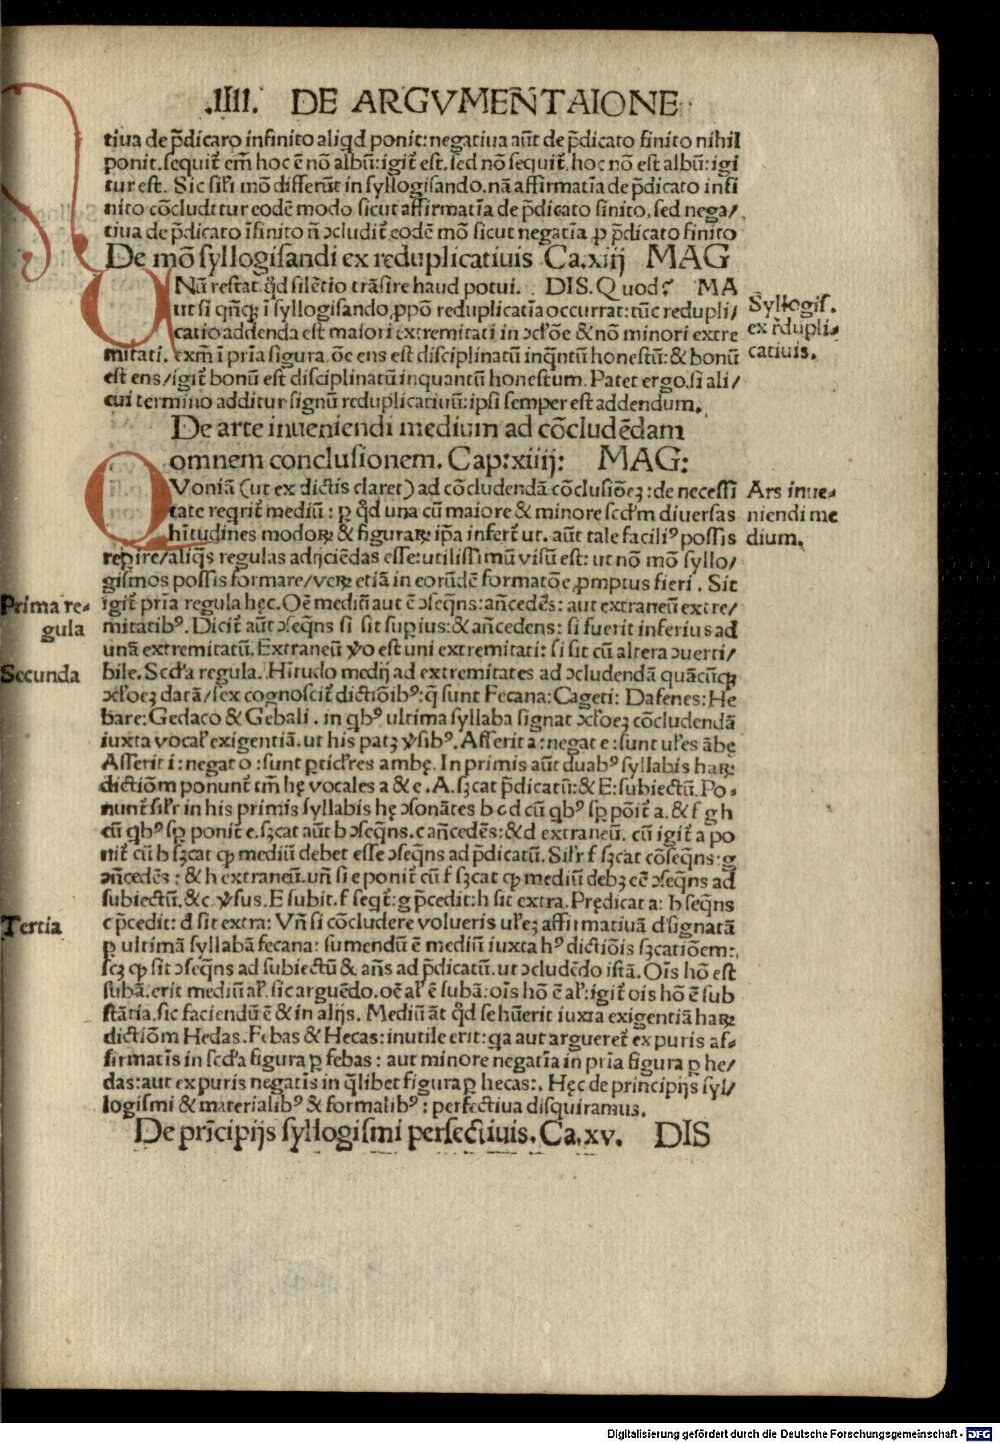 .IIII. DE ARGVMENTAIONE
tiua de p̄dicato infinito aliqd ponit: negatiua aūt de p̄dicato finito nihil
ponit. sequit̄ em̄ hoc ē nō albū: igit̄ est. sed nō sequit̄. hoc nō est albū: igi
tur est. Sic sil̄r mō differūt in syllogisando. nā affirmatīa de p̄dicato infi
nito cōcludit̄ tur eodē modo sicut affirmatīa de p̄dicato finito. sed nega/
tiua de p̄dicato īfinito n̄ ↄcludit̄ eodē mō sicut negatīa ꝑ p̄dicato finito
De mō syllogisandi ex reduplicatiuis Ca.xiij MAG
QNā restat qd̄ silētio trāsire haud potui. DIS. Quod? MA
ut si qn̄qꝫ ī syllogisando, ꝓpō reduplicatīa occurrat: tūc redupli/
catio addenda est maiori extremitati in ↄclōe & nō minori extre
mitati. exm̄ ī pria figura. ōe ens est disciplinatū inq̄ntū honestū: & bonū
est ens/igit̄ bonū est disciplinatū inquantū honestum. Patet ergo. si ali/
cui termino additur signū reduplicatiuū: ipsi semper est addendum.
Syllogis.
ex r̄dupli-
catiuis.
De arte inueniendi medium ad cōcludēdam
omnem conclusionem. Cap: xiiij: MAG:
QVoniā (ut ex dictis claret) ad cōcludendā cōclusiōeꝫ: de necessi
tate reqrit̄ mediū: ꝑ qd̄ una cū maiore & minore scd'm diuersas
hītudines modoꝝ & figuraꝝ ip̄a infert̄ ut. aūt tale faciliꝰ possis
reꝑire/aliq̄s regulas adijciēdas esse: utilissimū visū est: ut nō mō syllo/
gismos possis formare/veꝝ etiā in eorūdē formatōe ꝓmptus fieri. Sit
igit̄ prīa regula hęc. Oē mediū aut ē ↄseqn̄s: an̄cedēs: aut extraneū extre/
mitatibꝰ. Dicit̄ aūt ↄseqn̄s si sit suꝑius: & an̄cedens: si fuerit inferius ad
unā extremitatū. Extraneū v̄o est uni extremitati: si sit cū altera ↄuerti/
bile. Scd'a regula. Hītudo medij ad extremitates ad ↄcludendā quācūqꝫ
ↄcl'oeꝫ datā/sex cognoscit̄ dictiōibꝰ: q̄ sunt Fecana: Cageti: Dafenes: He
bare: Gedaco & Gebali. in qbꝰ ultima syllaba signat ↄcl'oeꝫ cōcludendā
iuxta vocal̄ exigentiā. ut his patꝫ v̄sibꝰ. Asserit a: negat e: sunt ul̄es ābę
Asserit i: negat o: sunt ꝑticl̄res ambę. In primis aūt duabꝰ syllabis haꝝ
dictiōm ponunt̄ tm̄ hę vocales a & e. A. sꝫcat p̄dicatū: & E: subiectū. Po-
nunt̄ sil̄r in his primis syllabis hę ↄsonātes b c d cū qbꝰ sꝑ pōit̄ a. & f g h
cū qbꝰ sꝑ ponit̄ e. sꝫcat aūt b ↄseqn̄s. c an̄cedēs: & d extraneū. cū igit̄ a po
nit̄ cū b sꝫcat qꝫ mediū debet esse ↄseqn̄s ad p̄dicatū. Sil̄r f sꝫcat cōseqn̄s: g
an̄cedēs: & h extraneū. un̄ si e ponit̄ cū f sꝫcat qꝫ mediū debꝫ eē ↄseqn̄s ad
subiectū. & c. v̄sus. E subit. f seqt̄: g p̄cedit: h sit extra. Prędicat a: b seqn̄s
c p̄cedit: d sit extra: Vn̄ si cōcludere volueris ul̄eꝫ affirmatiuā d'signatā
ꝑ ultimā syllabā fecana: sumendū ē mediū iuxta hꝰ dictiōis sꝫcatiōem:.
scꝫ qꝫ sit ↄseqn̄s ad subiectū & an̄s ad p̄dicatū. ut ↄcludēdo istā. Oīs hō est
subā. erit mediū al̄. sic arguēdo. oē al̄ ē subā: oīs hō ē al̄: igit̄ oīs hō ē sub
stātia. sic faciendū ē & in alijs. Mediū āt qd̄ se hūerit iuxta exigentiā haꝝ
dictiōm Hedas. Febas & Hecas: inutile erit: qa aut argueret̄ ex puris af-
firmatīs in scd'a figura ꝑ febas: aut minore negatīa in prīa figura ꝑ he/
das: aut ex puris negatīs in q̄libet figura ꝑ hecas:. Hęc de principijs syl/
logismi & materialibꝰ & formalibꝰ: perfectiua disquiramus.
Ars inue-
niendi me
dium.
Prima re-
gula
Secunda
Tertia
De prīcipijs syllogismi perfectiuis. Ca.xv. DIS
Digitalisierung gefördert durch die Deutsche Forschungsgemeinschaft - DFG